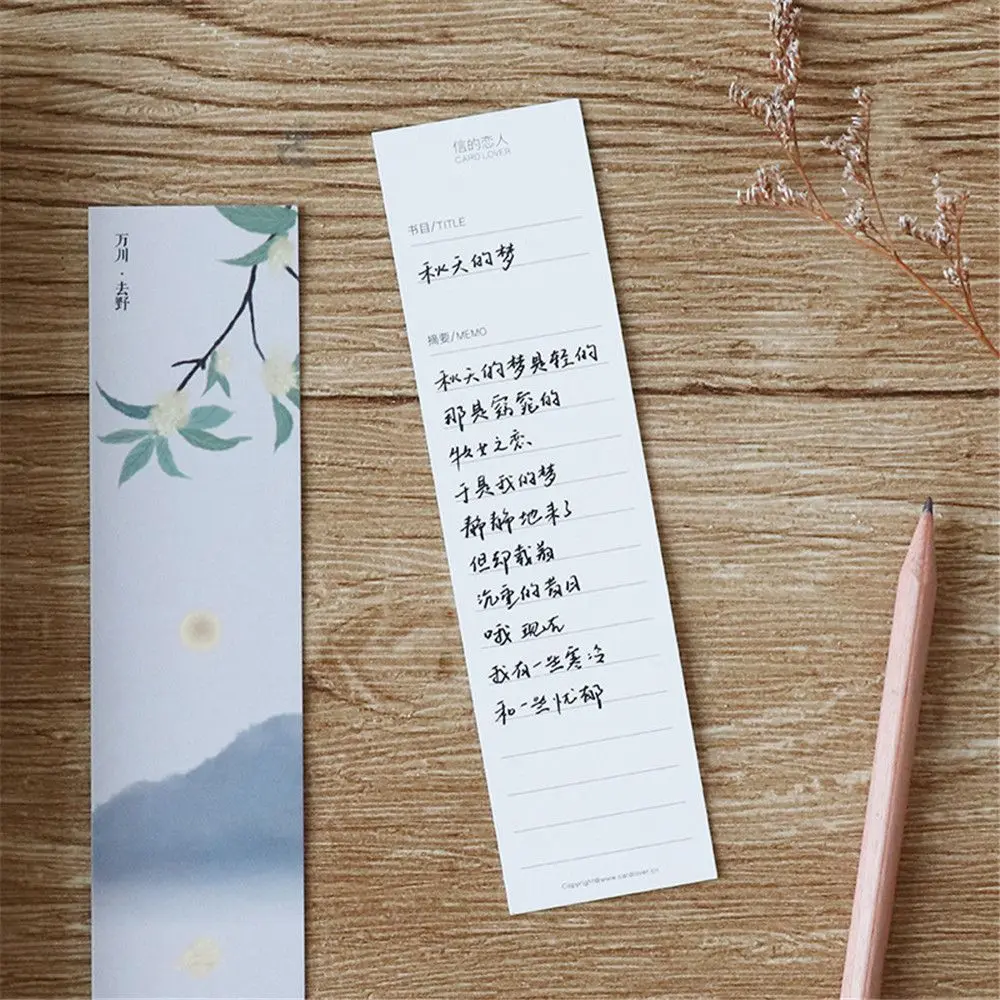 万川·去野
信的恋人
CARD LOVER
书目/TITLE
秋天的梦
摘要/MEMO
秋天的梦是轻的
那是窈窕的
牧女之恋
于是我的梦
静静地来了
但却载着
沉重的昔日
哦 现在
我有一些寒冷
和一些忧郁
Copyright@www.cardlover.cn